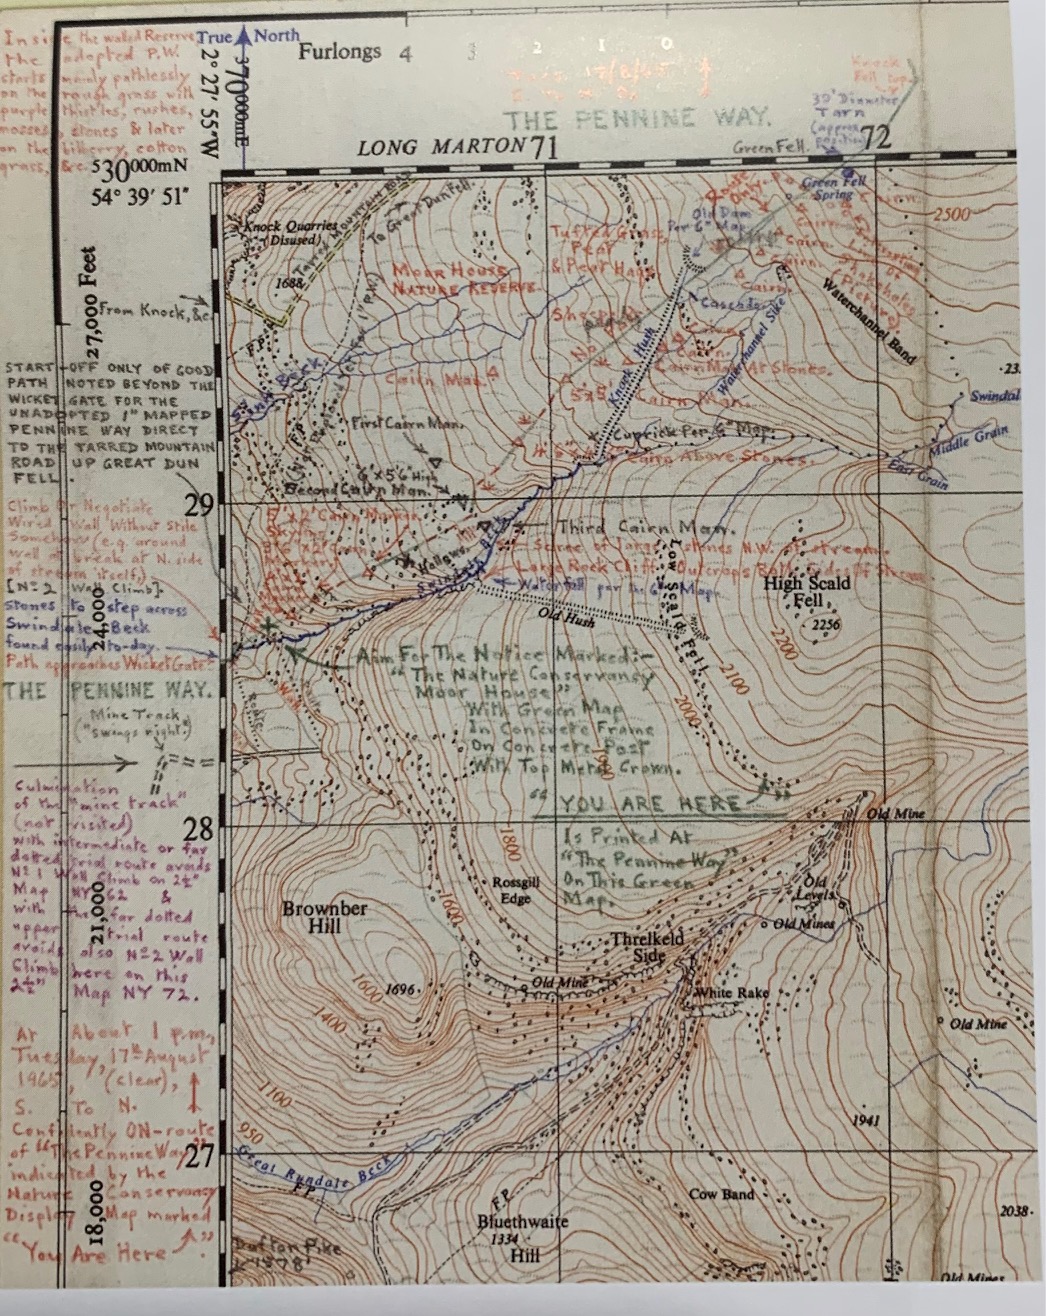 Inside the walled Reserve
the adopted P.W.
starts mainly pathlessly
on the rough grass with
purple thistles, rushes,
mosses, stones & later
on the bilberry, cotton
grass, &c.
True North
2° 27' 55"W
370000mE
Furlongs 4 3 2 1 0
THE PENNINE WAY.
Knock
Fell top
30' Diameter
Tarn
(approx.
position)
Green Fell.
LONG MARTON 71
72
530000mN
54° 39' 51"
Green Fell
Spring
2500
Knock Quarries
(Disused)
1688
Tarred MOUNTAIN ROAD
To Great Dun Fell.
MOOR HOUSE
NATURE RESERVE
Tufted Grass,
Peat
& Peat Hags.
Route
Only
Old Dam
Per 6" Map
Cairn.
Cairn.
Cairn.
Cairn.
27,000 Feet
From Knock, &c
F.P.
Swindale Beck
Cairn Man.
Knock Hush
Cascade
Cairn.
Cairn Man At Stones.
5'x5' Cairn Man.
Waterchannel Sike
Waterchannel Band
Swindale
Middle Grain
East Grain
START-OFF ONLY OF GOOD
PATH NOTED BEYOND THE
WICKET GATE FOR THE
UNADOPTED 1" MAPPED
PENNINE WAY DIRECT
TO THE TARRED MOUNTAIN
ROAD UP GREAT DUN
FELL.
First Cairn Man.
Cuprick Per 6" Map.
Cairn Above Stones.
6'x5'6 High
Second Cairn Man.
29
Third Cairn Man.
Scree of large stones N.W. of stream.
Large Rock Cliff Outcrops Both Sides of Stream.
Waterfall per the 6" Map.
Hallows.
Swindale Beck
Old Hush
Low Scald Fell
High Scald
Fell
2256
2200
2100
2000
Climb Or Negotiate
Wired Wall Without Stile
Somehow (e.g. around
wall break at N. side
of stream itself.)
[No 2 Wall Climb].
24,000
Stones to step across
Swindale Beck
found easily to-day.
Path approaches Wicket Gate.
THE PENNINE WAY.
Mine Track
("swings right.")
Aim For The Notice Marked:-
"The Nature Conservancy
Moor House"
With Green Map
In Concrete Frame
On Concrete Post
With Top Metal Crown.
"YOU ARE HERE"
Is Printed At
"The Pennine Way"
On This Green
Map.
Wall
Culmination
of the "mine track"
(not visited)
with intermediate or far
dotted trial route avoids
No 1 Wall Climb on 2½"
Map NY 62 &
with the far dotted
upper trial route
avoids also No 2 Wall
Climb here on this
2½" Map NY 72.
28
21,000
1800
1600
Old Mine
Rossgill
Edge
Old
Levels
Old Mines
Brownber
Hill
Threlkeld
Side
Old Mine
White Rake
1600
1696
1400
Old Mine
1100
950
1941
At About 1 p.m,
Tuesday, 17th August
1965, (clear),
S. To N.
Confidently ON-route
of "The Pennine Way"
indicated by the
Nature Conservancy
Display Map marked
"You Are Here".
27
18,000
Great Rundale Beck
FP
FP
Cow Band
Bluethwaite
1334
Hill
2038
Dufton Pike
Old Mines